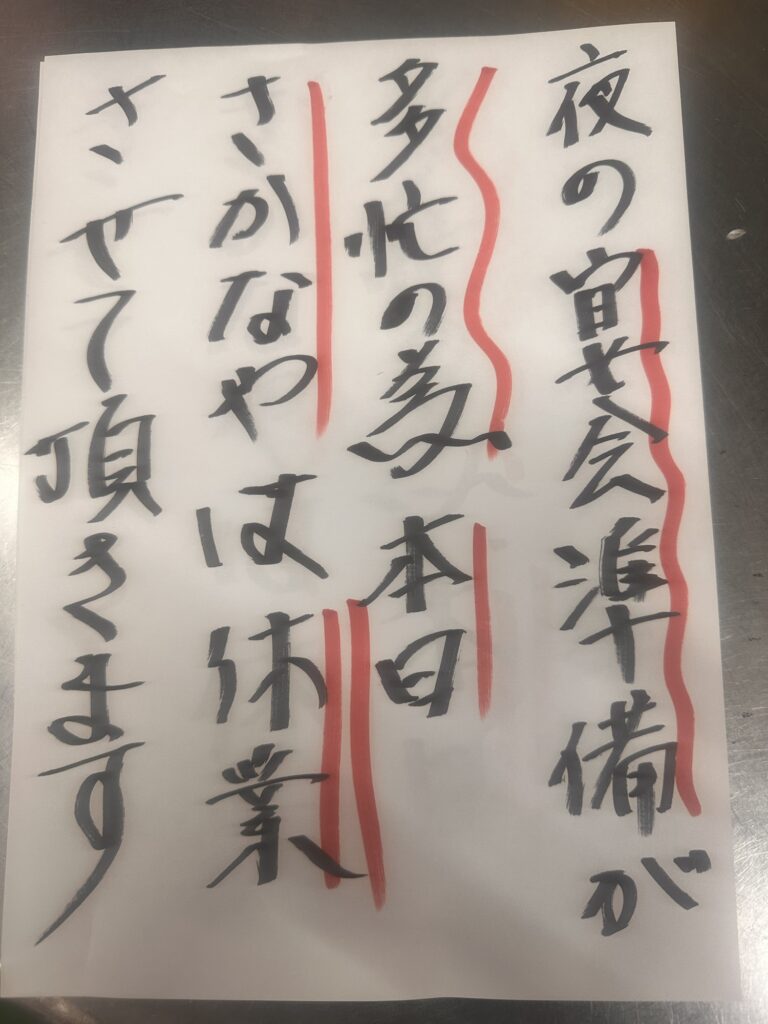 夜の宴会準備が
多忙の為本日
さかなやは休業
させて頂きます